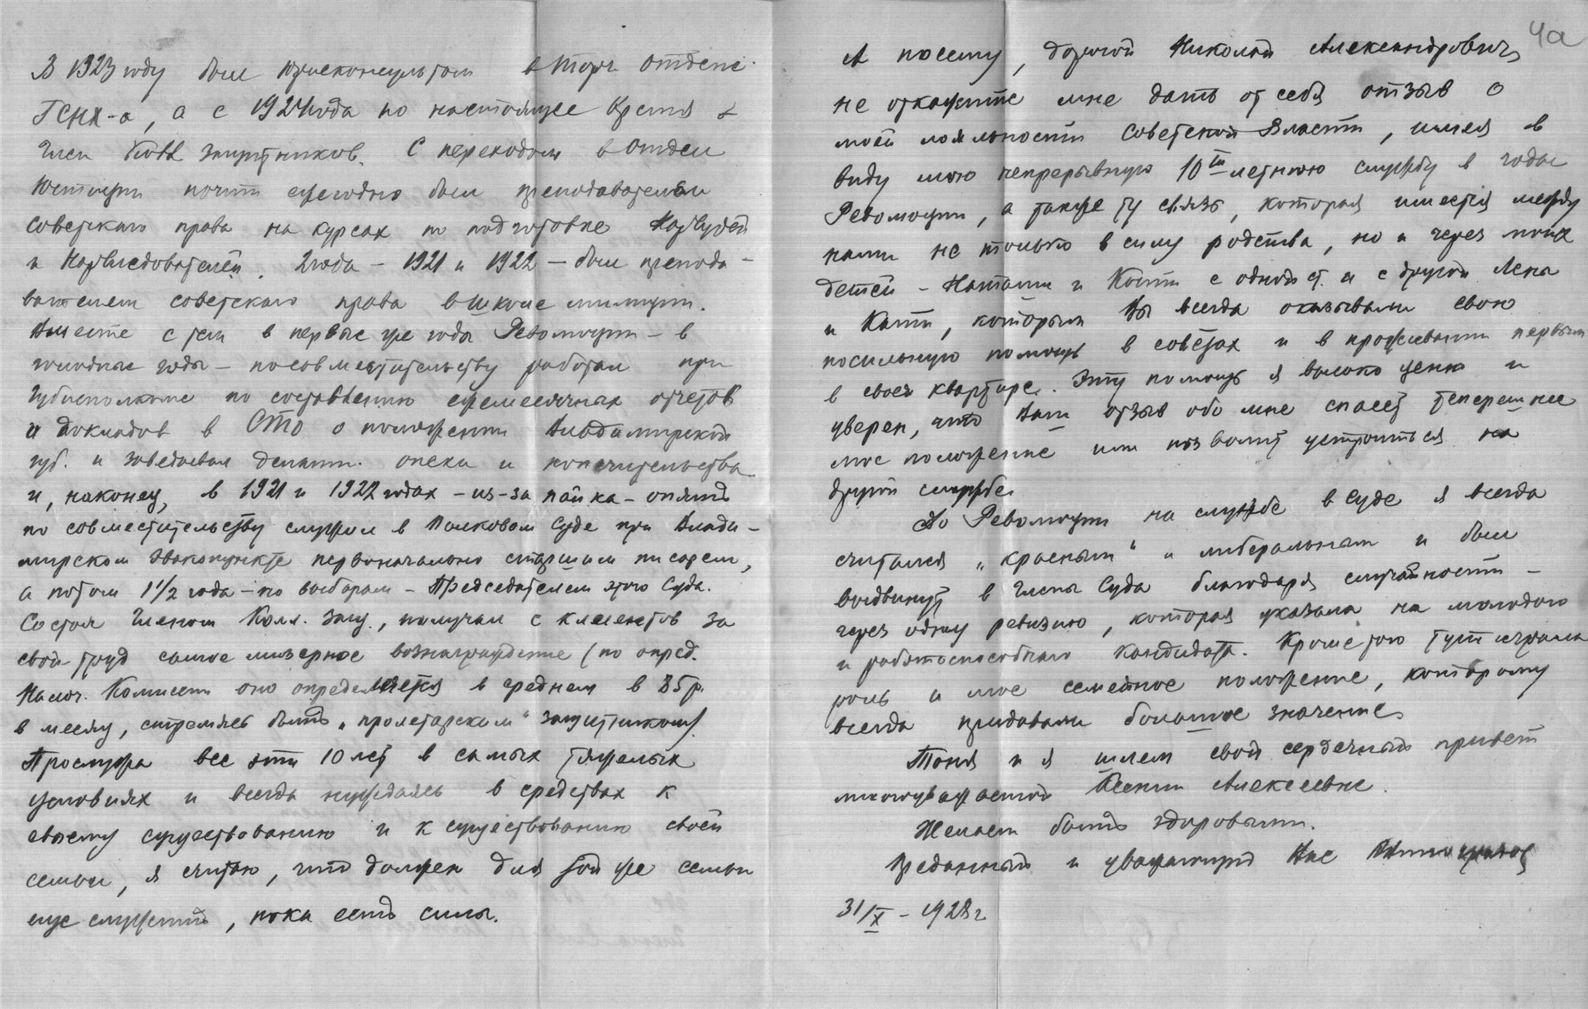 В 1923 году был юрисконсультом в Торг. отделе
ГСНХ-а, а с 1924 года по настоящее время я
член Колл. защитников. С переходом в Отдел
Юстиции почти ежегодно был преподавателем
советского права на курсах по подготовке Нарсудей
и Нарследователей. 2 года – 1921 и 1922 – был препода-
вателем советского права в школе милиции.
Вместе с тем в первые же годы Революции – в
голодные годы – по совместительству работал при
Губисполкоме по составлению ежемесячных отчетов
и докладов в СТО о положении Владимирской
губ. и заведывал делами опеки и попечительства
и, наконец, в 1921 и 1922 годах – из-за пайка – опять
по совместительству служил в Полковом Суде при Влади-
мирском Эвакопункте первоначально старшим писарем,
а потом 1 1/2 года – по выборам – Председателем этого Суда.
Состоя членом Колл. Защ., получал с клиентов за
свой труд самое мизерное вознаграждение (по опред.
Налог. Комиссии оно определяется в среднем в 85 р.
в месяц, стремясь быть „пролетарским" защитником).
Прослужа все эти 10 лет в самых тяжелых
условиях и всегда нуждаясь в средствах к
своему существованию и к существованию своей
семьи, я считаю, что должен для той же семьи
еще служить, пока есть силы.
4а
А посему, дорогой Николай Александрович,
не откажите мне дать от себя отзыв о
моей лояльности Советской Власти, имея в
виду мою непрерывную 10 III летнюю службу в годы
Революции, а также ту связь, которая имеется между
нами не только в силу родства, но и через моих
детей – Наташи и Кости с одной ст. и с другой Лены
и Кати, которым Вы всегда оказывали свою
посильную помощь в советах и в проживании первым
в своей квартире. Эту помощь я высоко ценю и
уверен, что Ваш отзыв обо мне спасет теперешнее
мое положение или позволит устроиться на
другой службе.
До Революции на службе в Суде я всегда
считался „красным" и либеральным и был
выдвинут в члены Суда благодаря случайности –
через одну ревизию, которая указала на молодого
и работоспособного кандидата. Кроме того тут играло
роль и мое семейное положение, которому
всегда придавали большое значение.
Тоня и я шлем свой сердечный привет
многоуважаемой Ксении Алексеевне.
Желаем быть здоровыми.
Преданный и уважающий Вас
31/X – 1928 г